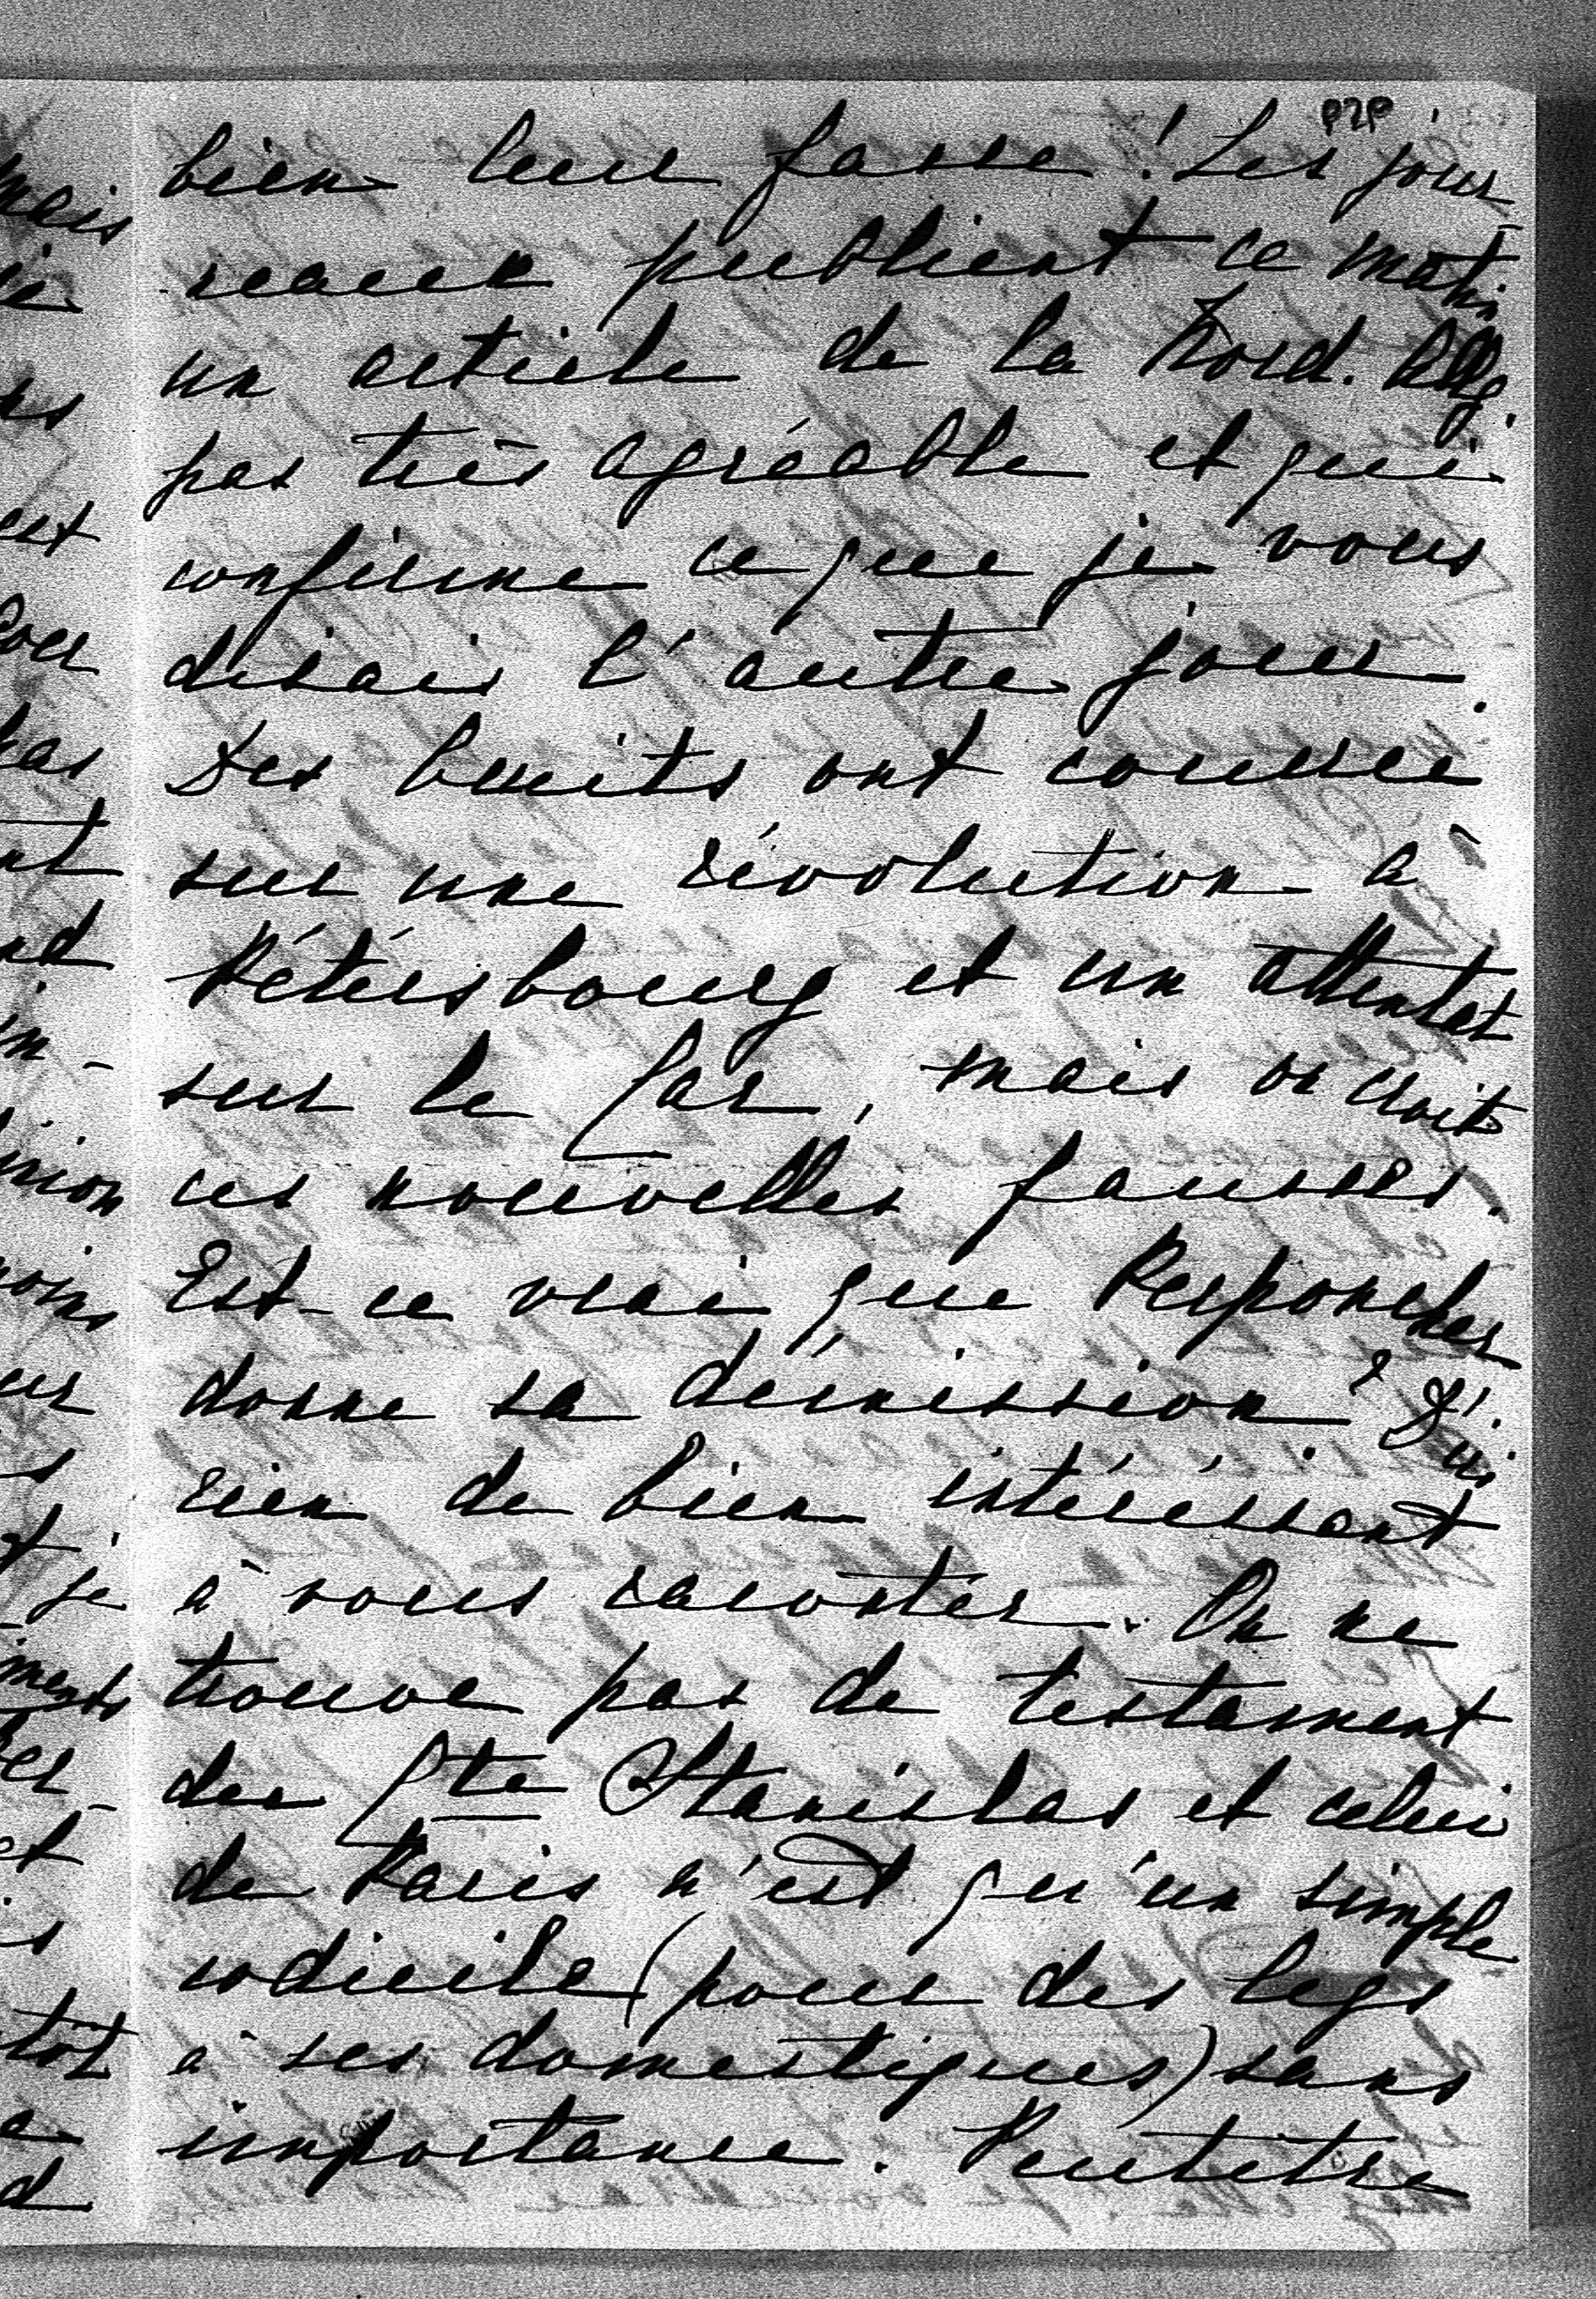 bien leur fasse! Les jour-
naux publient ce matin
un article de la Nord. Allg.
pas très agréable et qui
confirme ce que je vous
disais l'autre jour.
Des bruits ont couru
sur une révolution à
Pétersbourg et un attentat
sur le Czar, mais on croit
ces nouvelles fausses.
Est-ce vrai que Perponcher
donne sa démission? D'ici
rien de bien intéressant
à vous raconter. On ne
trouve pas de testament
du Cte Stanislas et celui
de Paris n'est qu'un simple
codicile (pour des legs
à ses domestiques) sans
importance. Peutetre